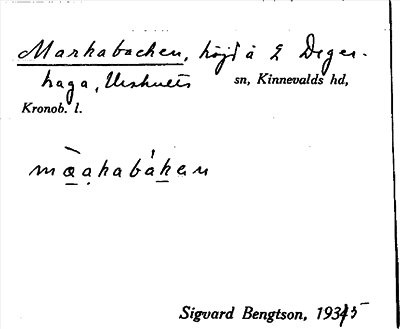 Markabacken, höjd å 2 Deger-
haga, Urshults sn, Kinnevalds hd,
Kronob. l.
màạkabáken
Sigvard Bengtson, 1935